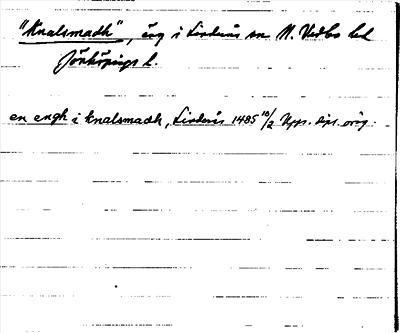 "Knalsmadh", äng i Linderås sn N. Vedbo hd
Jönköpings l.
en engh i knalsmadh, Linderås 1485 10/2 Upps. dipl. orig.